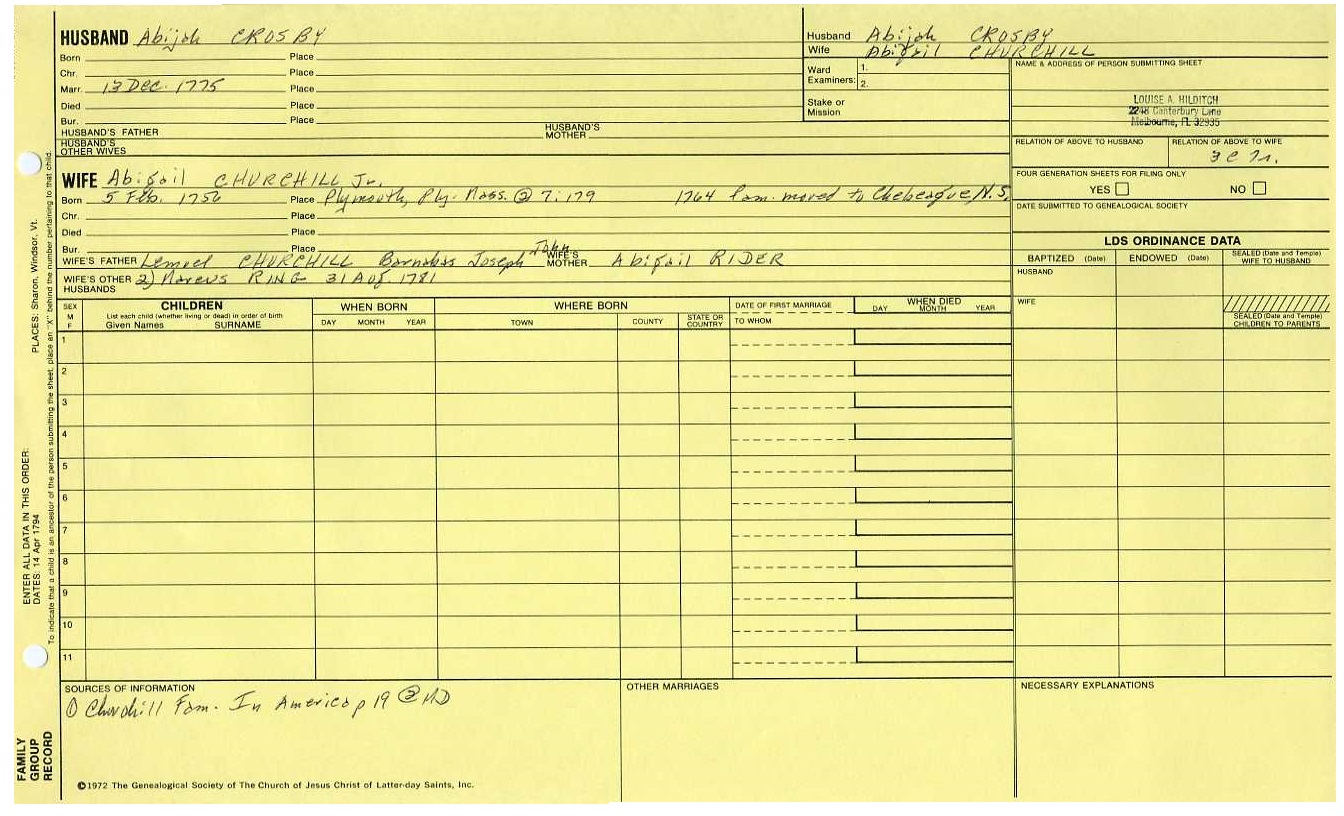 HUSBAND Abijah CROSBY
Born Place
Chr. Place
Marr. 13 Dec. 1775 Place
Died Place
Bur. Place
HUSBAND'S FATHER HUSBAND'S MOTHER
HUSBAND'S OTHER WIVES
Husband Abijah CROSBY
Wife Abigail CHURCHILL
Ward Examiners: 1. 2.
Stake or Mission
NAME & ADDRESS OF PERSON SUBMITTING SHEET
LOUISE A. HILDITCH
2248 Canterbury Lane
Melbourne, FL 32935
RELATION OF ABOVE TO HUSBAND RELATION OF ABOVE TO WIFE
3 C
FOUR GENERATION SHEETS FOR FILING ONLY
YES NO
DATE SUBMITTED TO GENEALOGICAL SOCIETY
WIFE Abigail CHURCHILL Jr.
Born 5 Feb. 1756 Place Plymouth, Ply. Mass. ② 7:179 1764 fam. moved to Chebeague, N.S.
Chr. Place
Died Place
Bur. Place
WIFE'S FATHER Lemuel CHURCHILL Barnabas Joseph John WIFE'S MOTHER Abigail RIDER
WIFE'S OTHER HUSBANDS 2) RING 31 Aug. 1781
LDS ORDINANCE DATA
BAPTIZED (Date) ENDOWED (Date) SEALED (Date and Temple) WIFE TO HUSBAND
HUSBAND
WIFE
SEALED (Date and Temple) CHILDREN TO PARENTS
SEX M F
CHILDREN
List each child (whether living or dead) in order of birth
Given Names SURNAME
WHEN BORN
DAY MONTH YEAR
WHERE BORN
TOWN COUNTY STATE OR COUNTRY
DATE OF FIRST MARRIAGE
TO WHOM
WHEN DIED
DAY MONTH YEAR
1
2
3
4
5
6
7
8
9
10
11
SOURCES OF INFORMATION
① Churchill Fam. In America p 19 ② MD
OTHER MARRIAGES
NECESSARY EXPLANATIONS
©1972 The Genealogical Society of The Church of Jesus Christ of Latter-day Saints, Inc.
FAMILY GROUP RECORD
ENTER ALL DATA IN THIS ORDER:
DATES: 14 Apr 1794
PLACES: Sharon, Windsor, Vt.
To indicate that a child is an ancestor of the person submitting the sheet, place an "X" behind the number pertaining to that child.